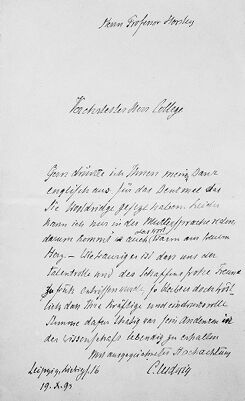 Herrn Professor Horsley
Hochverehrter Herr College
Gern drückte ich Ihnen meinen Dank
englisch aus, für das Denkmal das
Sie Wooldridge gesetzt haben. Leider
kann ich nur in der Muttersprache reden,
darum kommt es auch warm aus dem
Herz. – Wie traurig es ist dass uns der
talentvolle und des Schaffens frohe Freund
zu früh entrissen wurde, so bleibt doch
dass Ihre kräftige und eindrucksvolle
Stimme dafür sein Andenken in
der Wissenschaft lebendig zu erhalten
Mit ausgezeichneter Hochachtung
Leipzig, Liebigstr. 16
C. Ludwig
19. X. 93